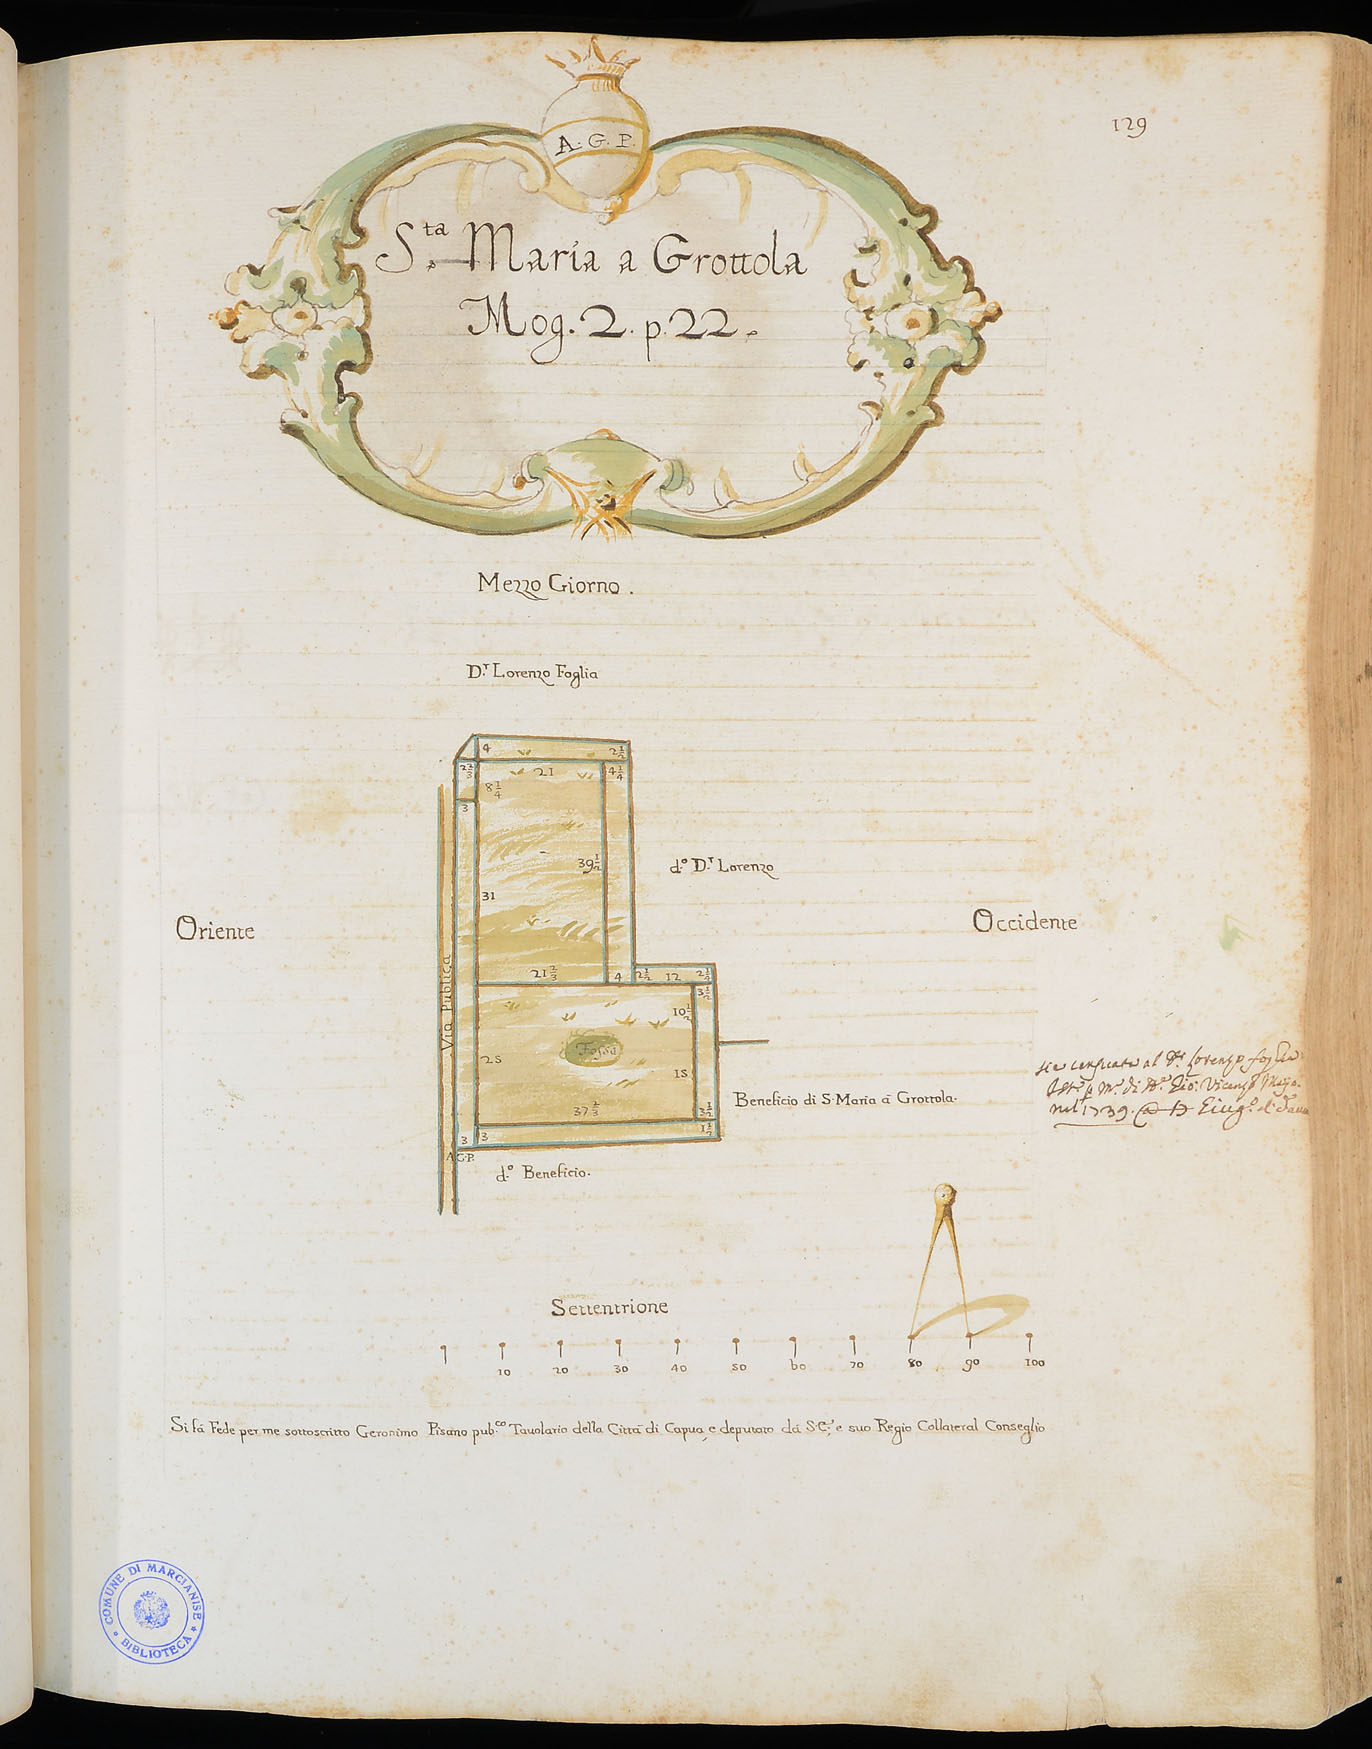 129
A. G. P.
S.ta Maria a Grottola
Mog. 2. p. 22.
Mezzo Giorno.
D.r Lorenzo Foglia
4 2½
2⅔ 21 4¼
8¼
3
39½
d.o D.r Lorenzo
31
Oriente
Occidente
21⅔ 4 2½ 12 2½
3½
10½
Via Publica
Fossa
25
15
37⅔ 3½
Beneficio di S. Maria à Grottola.
3 3 1½
A G. P.
d.o Beneficio.
al D.r Lorenzo foglia
di Gio: Vicenzo
nel 1739.
Settentrione
10 20 30 40 50 60 70 80 90 100
Si fà Fede per me sottoscritto Geronimo Pisano pub.co Tavolario della Città di Capua, e deputato dà S.C., e suo Regio Collateral Conseglio
COMUNE DI MARCIANISE
* BIBLIOTECA *